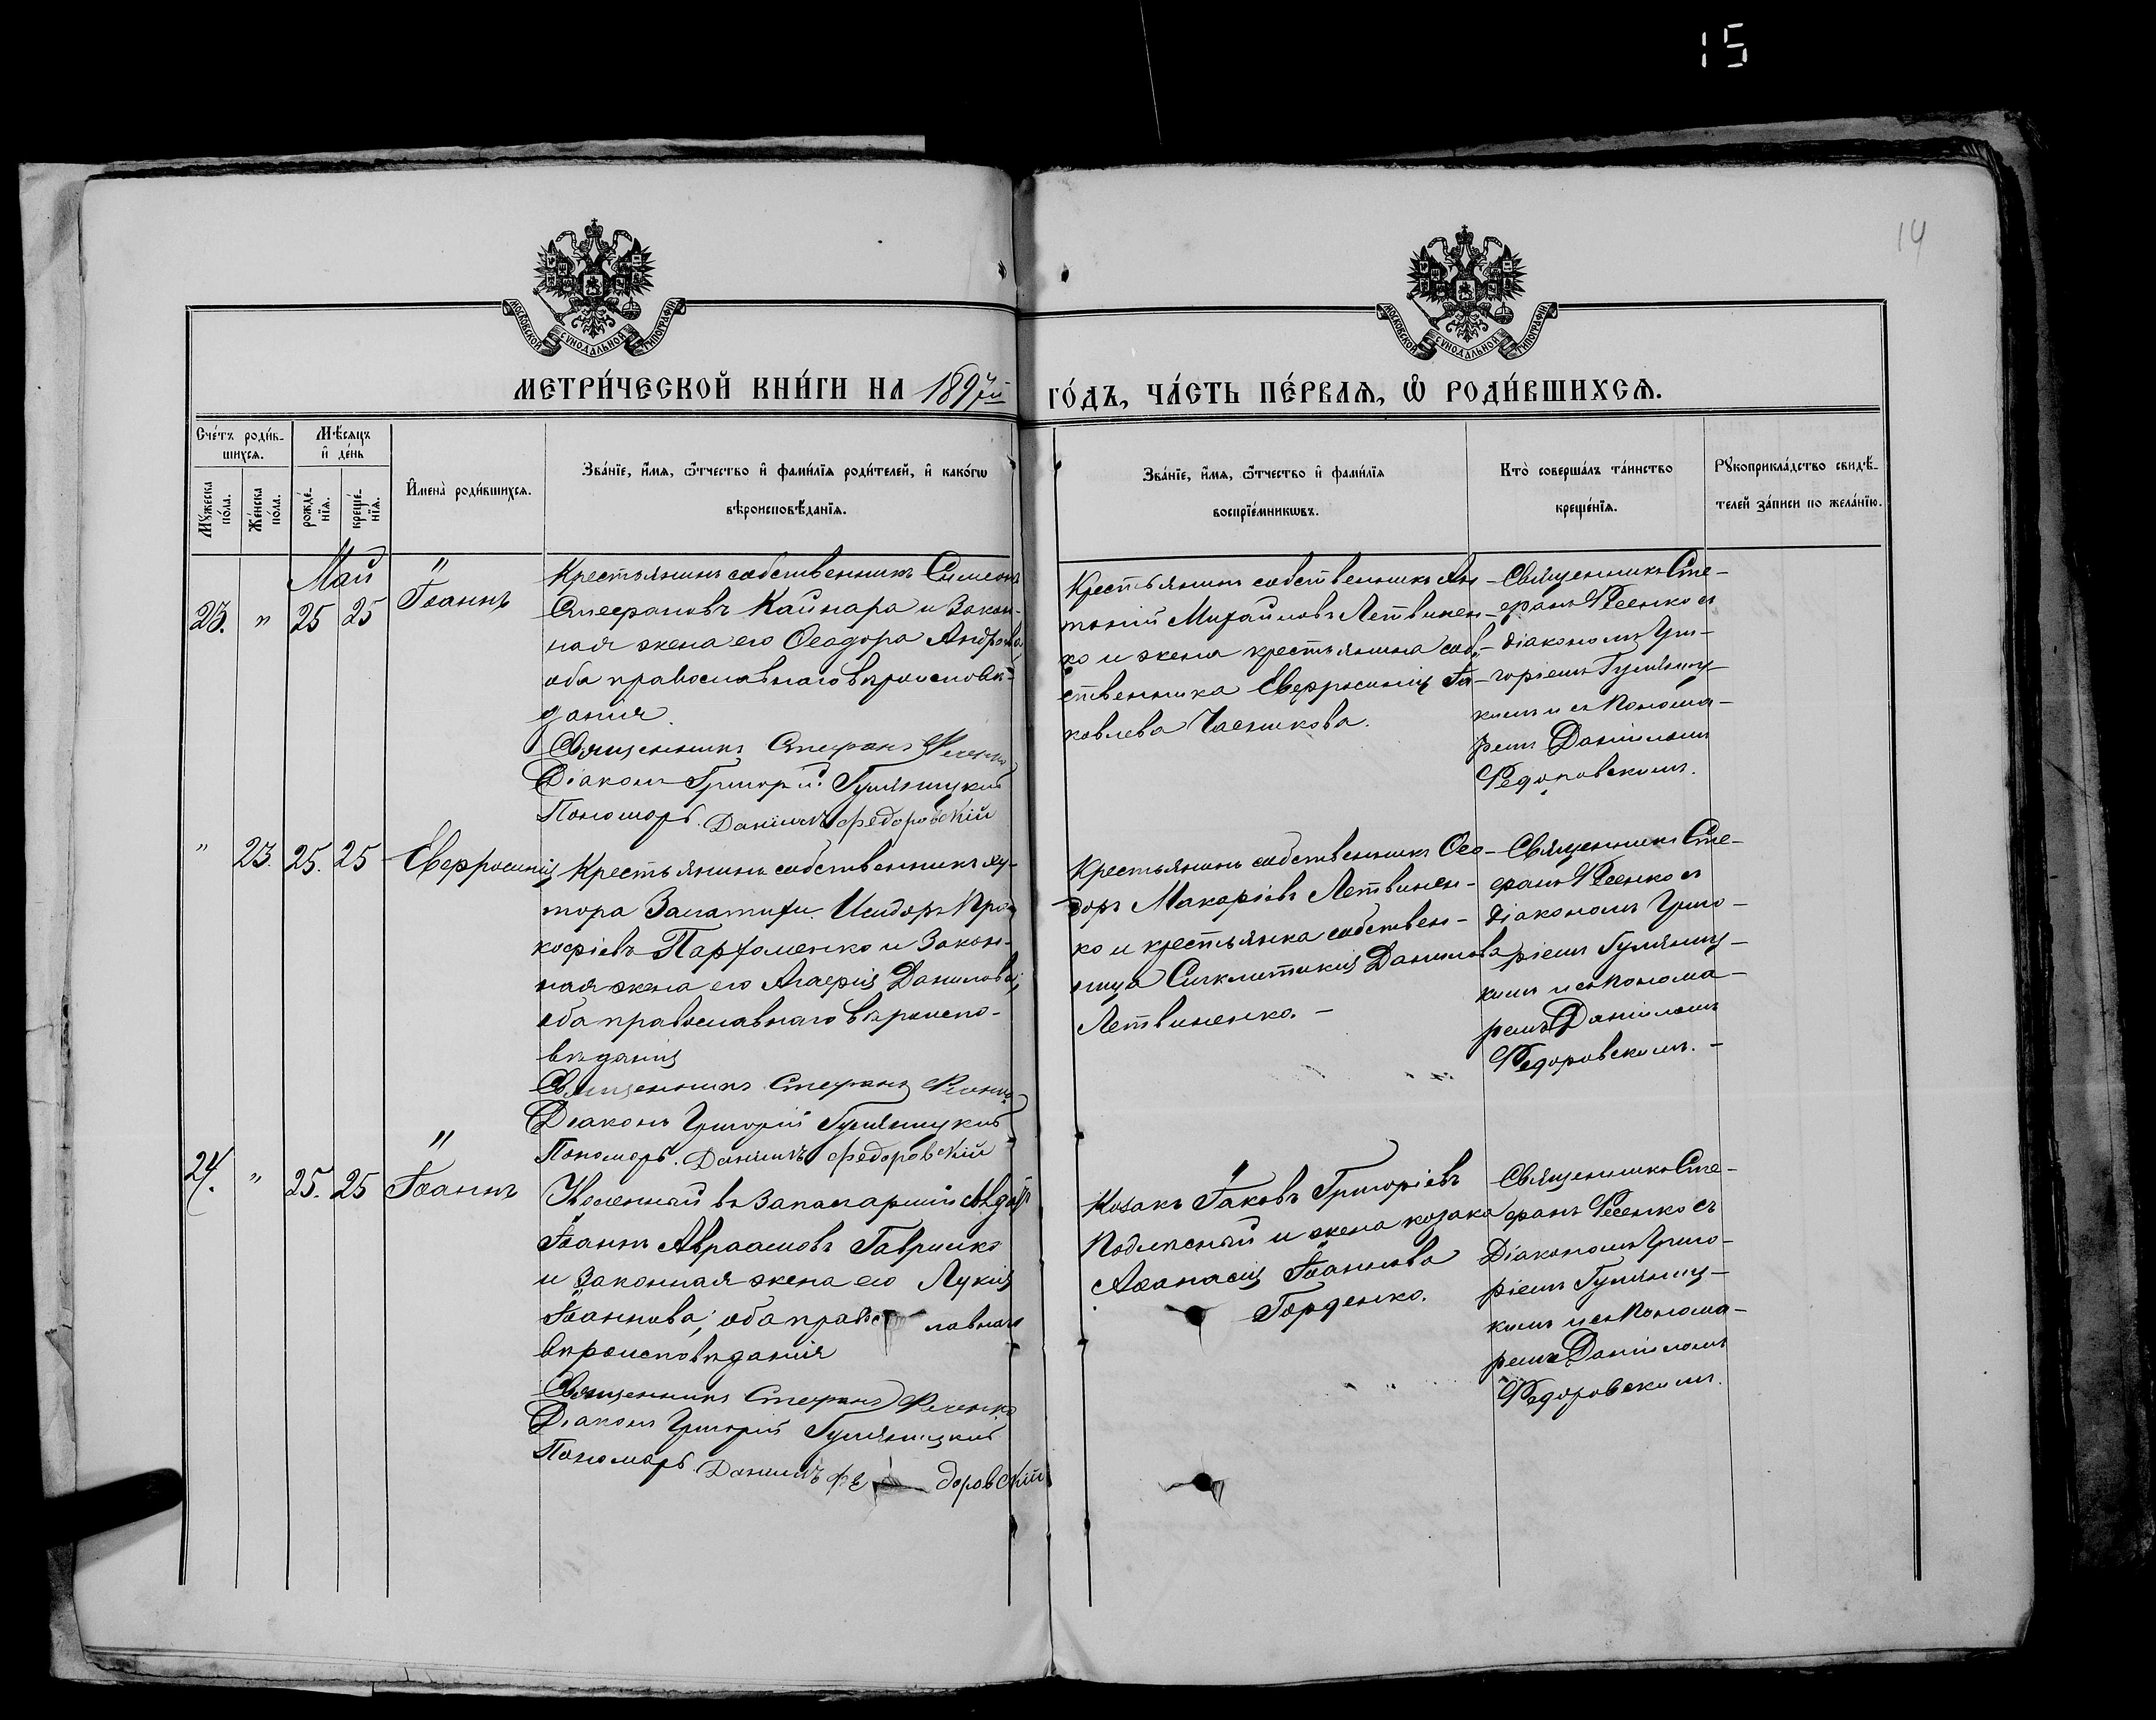 15
14
МОСКОВСКОЙ СѴНОДАЛЬНОЙ ТИПОГРАФІИ
МОСКОВСКОЙ СѴНОДАЛЬНОЙ ТИПОГРАФІИ
МЕТРИ́ЧЕСКОЙ КНИ́ГИ НА 1897й ГО́ДЪ, ЧА́СТЬ ПЕ́РВАѦ, Ѡ҆ РОДИ́ВШИХСѦ.
Сче́тъ роди́в-
шихсѧ.
Мѣ́сѧцъ
и҆ де́нь
Мꙋ́жеска
по́ла.
Же́нска
по́ла.
рожде́-
нїѧ.
креще́-
нїѧ.
И҆мена̀ роди́вшихсѧ.
Зва́нїе, и҆́мѧ, ѻ҆́тчество и҆ фами́лїѧ роди́телей, и҆ како́гѡ
вѣроисповѣ́данїѧ.
Зва́нїе, и҆́мѧ, ѻ҆́тчество и҆ фами́лїѧ
воспрїе́мникѡвъ.
Кто̀ соверша́лъ та́инство
креще́нїѧ.
Рꙋкоприкла́дство свидѣ́-
телей за́писи по жела́нїю.
Май
23. " 25 25
Іоаннъ
Крестьянинъ собственникъ Симеонъ
Стефановъ Кайнара и закон-
ная жена его Ѳеодора Андреева
оба православнаго вѣроисповѣ-
данія.
Священникъ Стефанъ Фесенко
Діаконъ Григорій Гумяницкій
Пономарь Даніилъ Федоровскій
Крестьянинъ собственникъ Ан-
тоній Михайловъ Летвинен-
ко и жена крестьянина соб-
ственника Евфросинія Іа-
ковлева Часникова.
Священникъ Сте-
фанъ Фесенко съ
діакономъ Гри-
горіемъ Гумяниц-
кимъ и съ понома-
ремъ Даніиломъ
Федоровскимъ.
" 23. 25. 25
Евфросинія
Крестьянинъ собственникъ ху-
тора Исидоръ Про-
кофіевъ Парфоменко и закон-
ная жена его Агафія Данилова,
оба православнаго вѣроиспо-
вѣданія
Священникъ Стефанъ Фесенко
Діаконъ Григорій Гумяницкій
Пономарь Даніилъ Федоровскій
Крестьянинъ собственникъ Ѳео-
доръ Макаріевъ Летвинен-
ко и крестьянка собствен-
ница Синклитикія Данилова
Летвиненко. -
Священникъ Сте-
фанъ Фесенко съ
діакономъ Григо-
ріемъ Гумяниц-
кимъ и съ понома-
ремъ Даніиломъ
Федоровскимъ. -
24. " 25. 25
Іоаннъ
Уволенный въ запасъ армій
Іоаннъ Авраамовъ Гаврилко
и законная жена его Лукія
Іоаннова, оба православнаго
вѣроисповѣданія
Священникъ Стефанъ Фесенко
Діаконъ Григорій Гумяницкій
Пономарь Даніилъ Федоровскій
Козакъ Іаковъ Григоріевъ
Подлѣсный и жена козака
Аѳанасія Іоаннова
Горденко.
Священникъ Сте-
фанъ Фесенко съ
Діакономъ Григо-
ріемъ Гумяниц-
кимъ и съ понома-
ремъ Даніиломъ
Федоровскимъ.